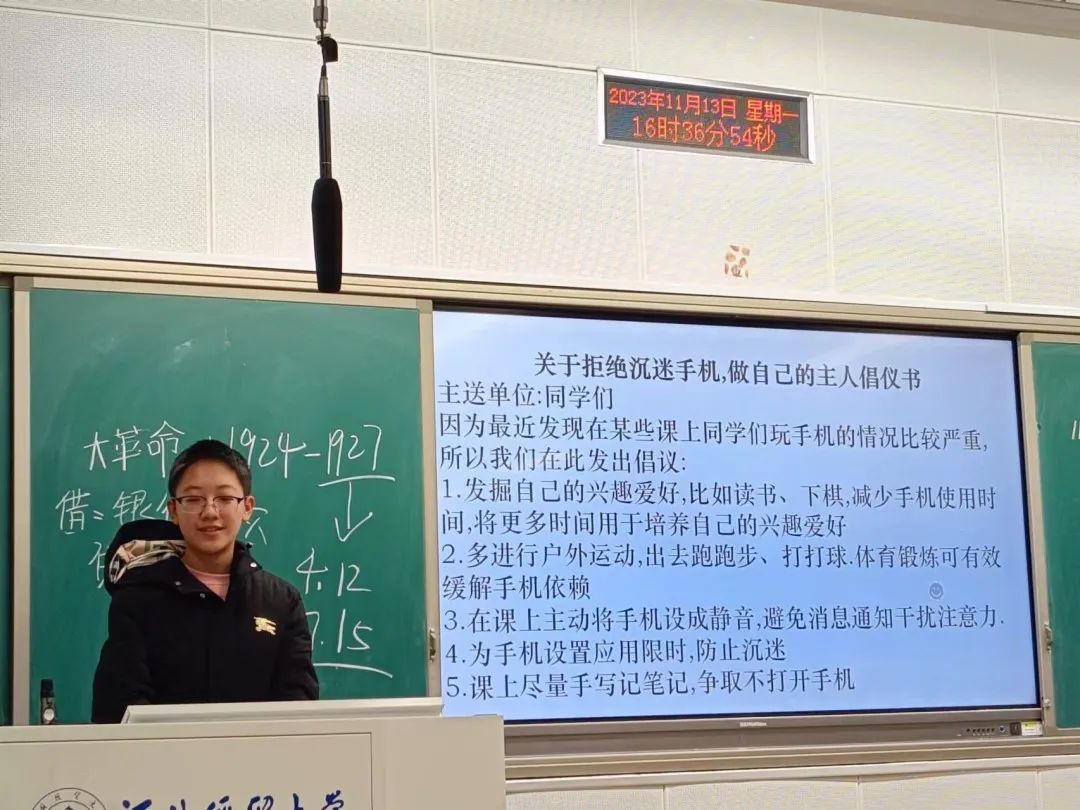 2023年11月13日 星期一
16时36分54秒
大革命 1924-1927
借:银
4.12
7.15
关于拒绝沉迷手机,做自己的主人倡仪书
主送单位:同学们
因为最近发现在某些课上同学们玩手机的情况比较严重,
所以我们在此发出倡议:
1.发掘自己的兴趣爱好,比如读书、下棋,减少手机使用时
间,将更多时间用于培养自己的兴趣爱好
2.多进行户外运动,出去跑跑步、打打球.体育锻炼可有效
缓解手机依赖
3.在课上主动将手机设成静音,避免消息通知干扰注意力.
4.为手机设置应用限时,防止沉迷
5.课上尽量手写记笔记,争取不打开手机
河北经贸大学